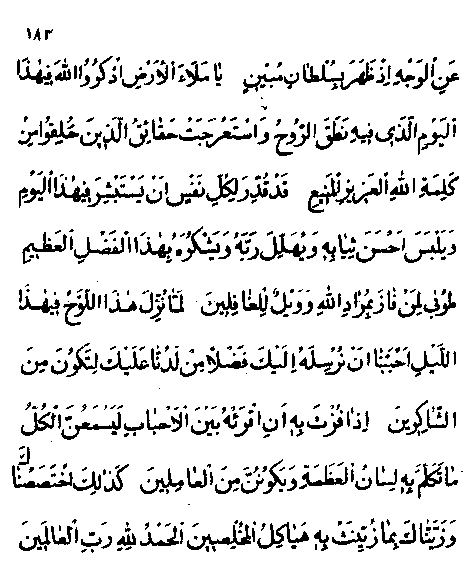 ١٨٣
عَنِ الْوَجْهِ اِذْ ظَهَرَ بِسُلْطَانٍ مُبِيْنٍ يَا مَلَاءَ الْاَرْضِ اذْكُرُوا اللهَ فِيْهٰذَا
الْيَوْمِ الَّذِى فِيْهِ نَطَقَ الرُّوْحُ وَاسْتَعْرَجَتْ حَقَائِقُ الَّذِيْنَ خُلِقُوا مِنْ
كَلِمَةِ اللهِ الْعَزِيْزِ الْمَنِيْعِ قَدْ قُدِّرَ لِكُلِّ نَفْسٍ اَنْ يَسْتَبْشِرَ فِيْهٰذَا الْيَوْمِ
وَيَلْبَسَ اَحْسَنَ ثِيَابِهِ وَيُهَلِّلَ رَبَّهُ وَيَشْكُرَهُ بِهٰذَا الْفَضْلِ الْعَظِيْمِ
طُوْبٰى لِمَنْ فَازَ بِمُرَادِ اللهِ وَوَيْلٌ لِلْغَافِلِيْنَ لَمَّا نُزِّلَ هٰذَا اللَّوْحُ فِيْهٰذَا
اللَّيْلِ اَحْبَبْنَا اَنْ نُرْسِلَهُ اِلَيْكَ فَضْلًا مِنْ لَدُنَّا عَلَيْكَ لِتَكُوْنَ مِنَ
الشَّاكِرِيْنَ اِذَا فُزْتَ بِهِ اَنِ اقْرَئْهُ بَيْنَ الْاَحْبَابِ لِيَسْمَعُنَّ الْكُلُّ
مَا تَكَلَّمَ بِهِ لِسَانُ الْعَظَمَةِ وَيَكُوْنُنَّ مِنَ الْعَامِلِيْنَ كَذٰلِكَ اخْتَصَصْنَاكَ
وَزَيَّنَّاكَ بِمَا زُيِّنَتْ بِهِ هَيَاكِلُ الْمُخْلِصِيْنَ الْحَمْدُ لِلّٰهِ رَبِّ الْعَالَمِيْنَ